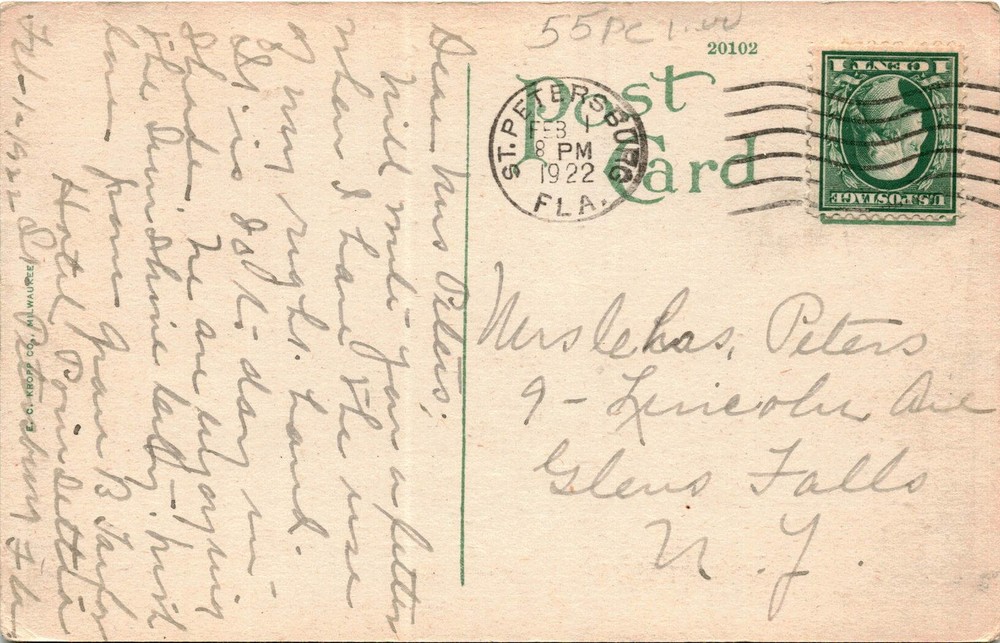 55 PC
20102
Post
Card
ST. PETERSBURG
FEB 1
8 PM
1922
FLA.
1 CENT 1
U.S. POSTAGE
Mrs Chas. Peters
9 - Lincoln Ave
Glens Falls
N. Y.
Dear Mrs Peters,
Will write you a letter
when I have the use
of my right hand.
It is 80° to day in
shade. We are enjoying
the sunshine daily - with
love from
Hotel Poinsettia
Feb - 1 - 1922 St Petersburg Fla
E. C. KROPP CO., MILWAUKEE